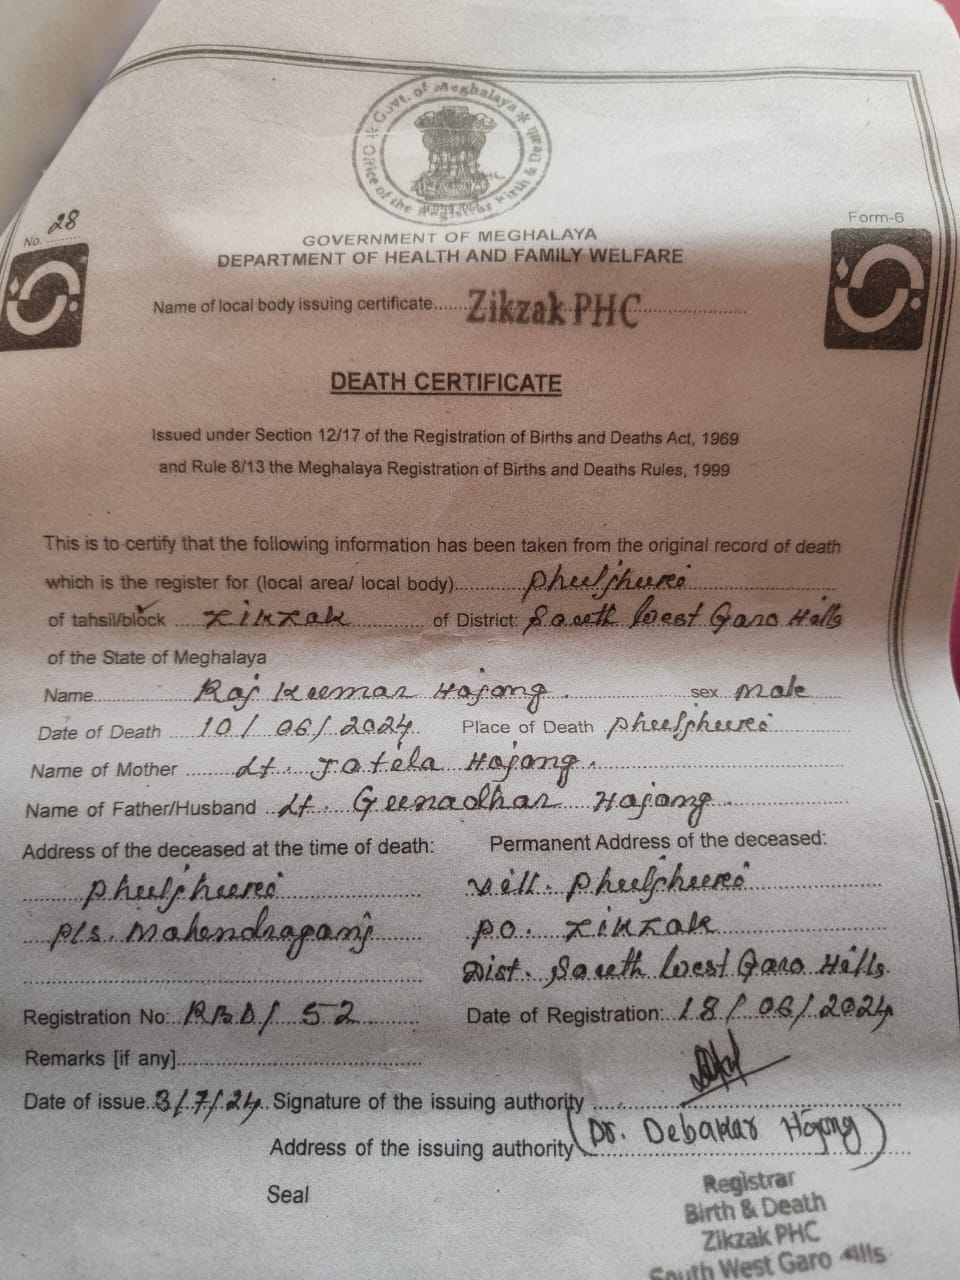 Govt. of Meghalaya
Office of the Registrar Birth & Death
No. 28
Form-6
GOVERNMENT OF MEGHALAYA
DEPARTMENT OF HEALTH AND FAMILY WELFARE
Name of local body issuing certificate......Zikzak PHC......
DEATH CERTIFICATE
Issued under Section 12/17 of the Registration of Births and Deaths Act, 1969
and Rule 8/13 the Meghalaya Registration of Births and Deaths Rules, 1999
This is to certify that the following information has been taken from the original record of death
which is the register for (local area/ local body)......Phuljhuri......
of tahsil/block ......Zikzak...... of District: South West Garo Hills
of the State of Meghalaya
Name......Raj Kumar Hajong...... sex Male
Date of Death ......10/06/2024...... Place of Death Phuljhuri
Name of Mother ......Lt. Jatila Hajong......
Name of Father/Husband ...Lt. Gunadhar Hajong...
Address of the deceased at the time of death: Permanent Address of the deceased:
Phuljhuri Vill. Phuljhuri
P/s. Mahendraganj P.O. Zikzak
Dist. South West Garo Hills
Registration No: RBD/ 52 Date of Registration: 18/06/2024
Remarks [if any]......
Date of issue..3/7/24.. Signature of the issuing authority ......
Address of the issuing authority (Dr. Debakar Hajong)
Seal
Registrar
Birth & Death
Zikzak PHC
South West Garo Hills